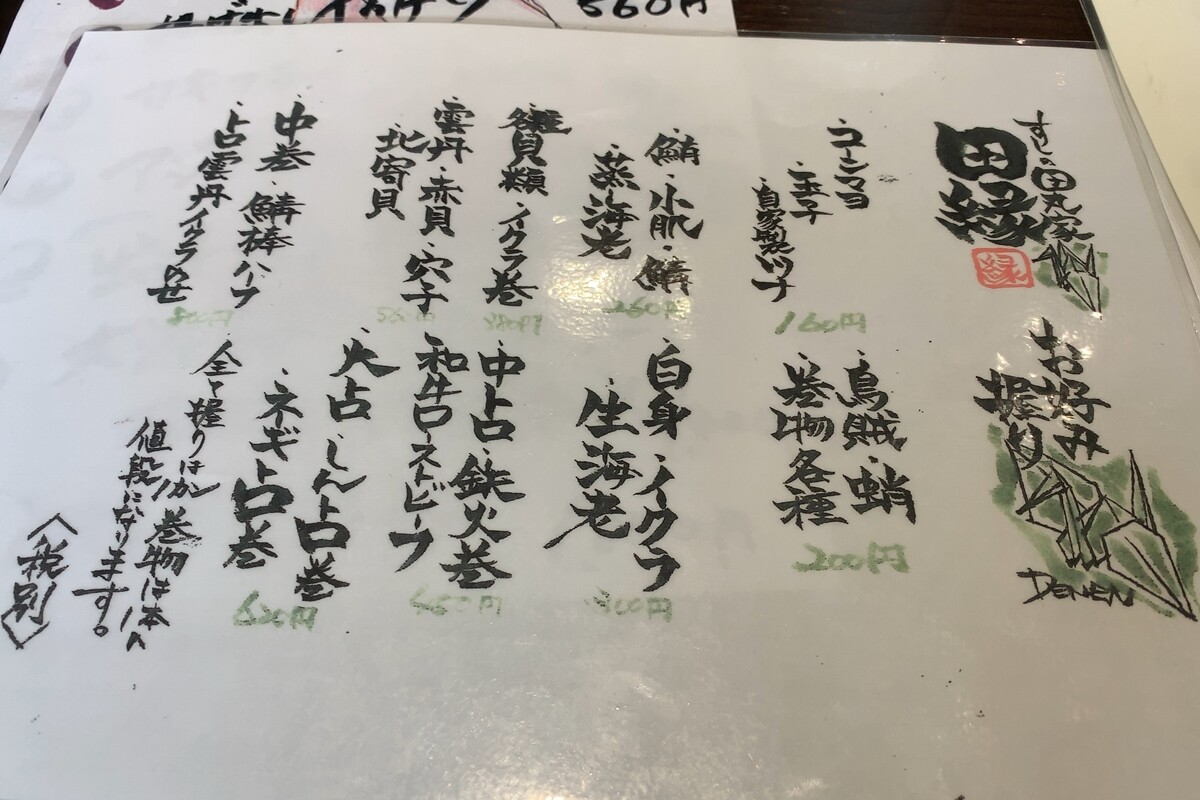 560円
すしの田丸家
田縁
縁
お好み
握り
DENEN
コーンマヨ
・玉子
・自家製ツナ
160円
烏賊・蛸
・巻物各種
200円
・鮪・小肌・鯖
・蒸海老
260円
白身・イクラ
・生海老
300円
貝類・イクラ巻
380円
・雲丹・赤貝・穴子
・北寄貝
560円
中トロ・鉄火巻
・和牛ローストビーフ
・中巻・鯖棒ハーフ
・占雲丹イクラのせ
800円
大占・しんトロ巻
・ネギトロ巻
620円
全て握りは
巻物は一本の
値段になります。
〈税別〉